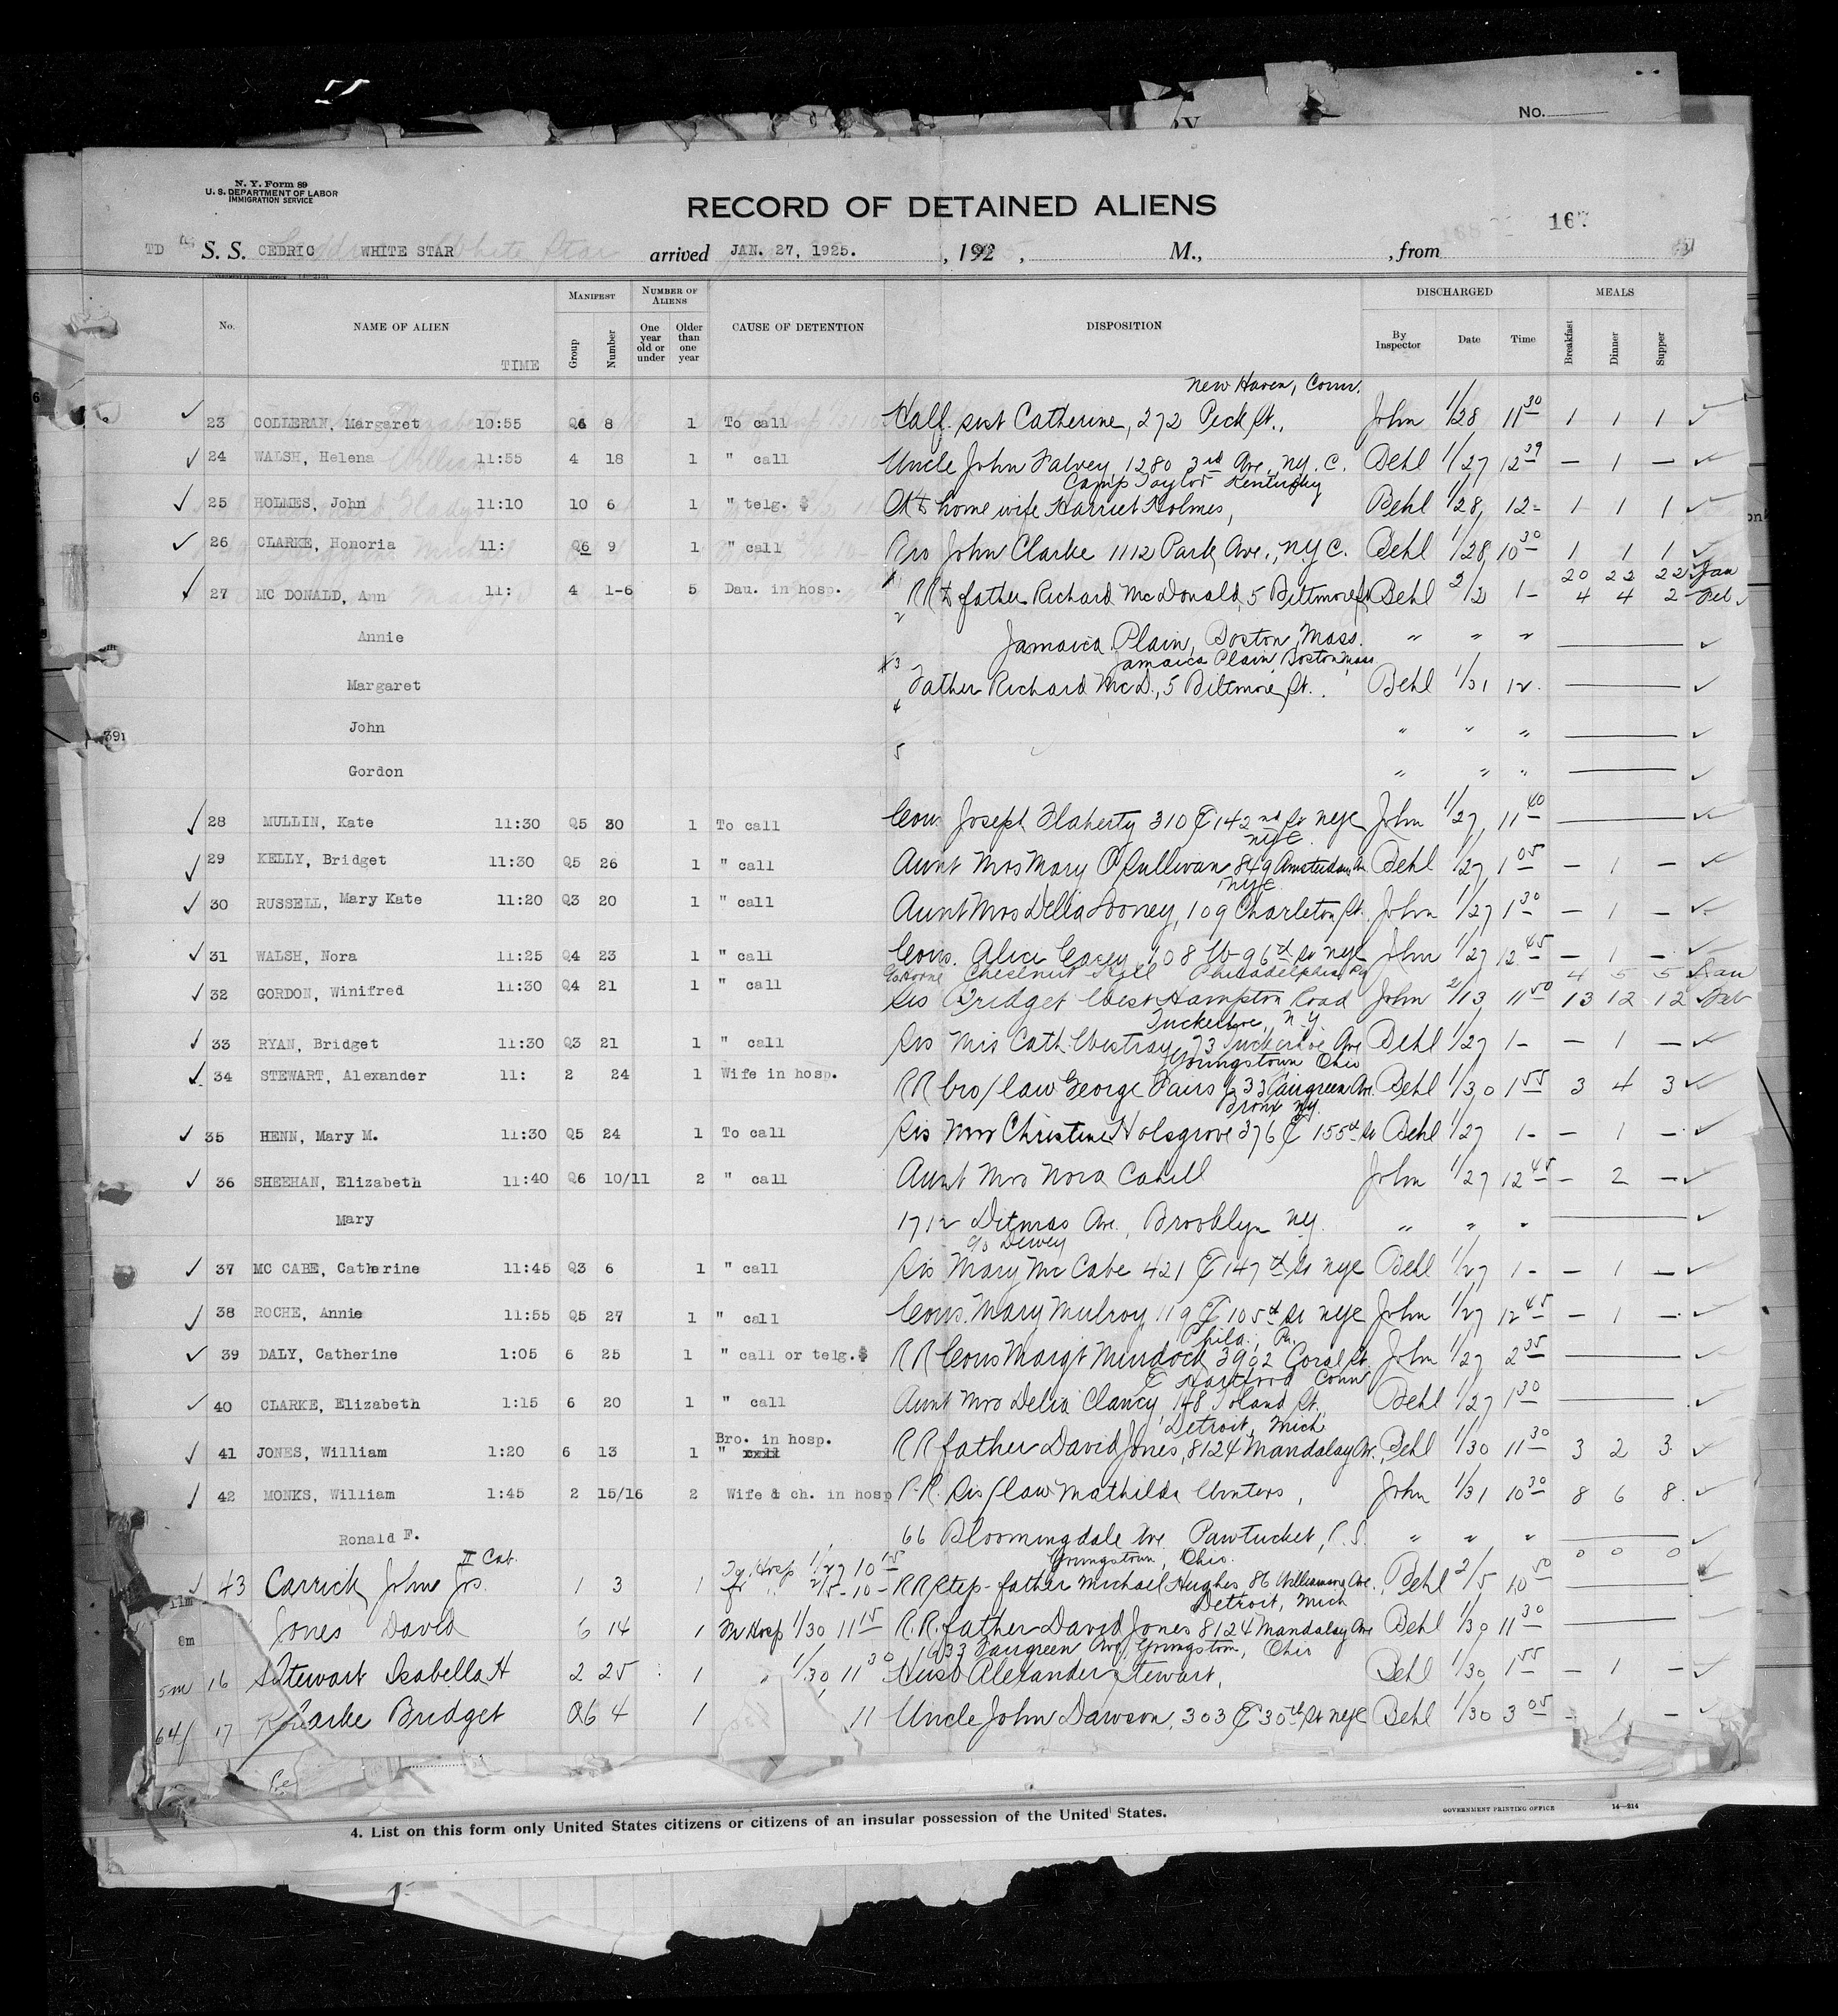 No.
N. Y. Form 89
U. S. DEPARTMENT OF LABOR
IMMIGRATION SERVICE
RECORD OF DETAINED ALIENS
167
TD S. S. CEDRIC WHITE STAR arrived JAN. 27, 1925. , 192 , M., , from
No. NAME OF ALIEN TIME MANIFEST Group Number NUMBER OF ALIENS One year old or under Older than one year CAUSE OF DETENTION DISPOSITION DISCHARGED By Inspector Date Time MEALS Breakfast Dinner Supper
New Haven, Conn.
23 COLLERAN, Margaret 10:55 Q6 8 1 To call Half sist Catherine, 272 Peck St., John 1/28 11 30 1 1 1 ✓
24 WALSH, Helena 11:55 4 18 1 " call Uncle John Falvey 1280 3rd Ave. N.Y. C. Behl 1/27 12 39 — 1 — ✓
Camp Taylor Kentucky
25 HOLMES, John 11:10 10 6 1 " telg. $ home wife Harriet Holmes, Behl 1/28 12 - 1 1 1 ✓
26 CLARKE, Honoria 11: Q6 9 1 " call Bro John Clarke 1112 Park Ave., N.Y.C. Behl 1/28 10 30 1 1 1 ✓
20 22 22 Jan
27 MC DONALD, Ann 11: 4 1-6 5 Dau. in hosp. RR to father Richard McDonald, 5 Biltmore St Behl 2/2 1 - 4 4 2 Feb
2
Annie Jamaica Plain, Boston, Mass. " " " — ✓
Jamaica Plain Boston Mass
3
Margaret Father Richard McD., 5 Biltmore St. Behl 1/31 12 — ✓
4
John " " " — ✓
5
Gordon " " " — ✓
28 MULLIN, Kate 11:30 Q5 30 1 To call Cous. Joseph Flaherty 310 E 142nd St NYC John 1/27 11 40 — ✓
NYC
29 KELLY, Bridget 11:30 Q5 26 1 " call Aunt Mrs Mary O'Sullivan 849 Amsterdam Av Behl 1/27 1 05 — 1 — ✓
NYC
30 RUSSELL, Mary Kate 11:20 Q3 20 1 " call Aunt Mrs Delia Looney, 109 Charleton St. John 1/27 1 30 — 1 — ✓
31 WALSH, Nora 11:25 Q4 23 1 " call Cous. Alice Carey 108 W 96th St NYC John 1/27 12 45 — 1 — ✓
Chestnut Hill Philadelphia Pa 4 5 5 Jan
32 GORDON, Winifred 11:30 Q4 21 1 " call Sis Bridget West Hampton Road John 2/13 11 50 13 12 12 Feb
Tuckahoe, N.Y
33 RYAN, Bridget 11:30 Q3 21 1 " call Sis Mrs Cath. 73 Tuckahoe Ave Behl 1/27 1 - — 1 — ✓
Youngstown Ohio
34 STEWART, Alexander 11: 2 24 1 Wife in hosp. RR bro/law George Fairgreen Ave. Behl 1/30 1 55 3 4 3 ✓
Bronx NY.
35 HENN, Mary M. 11:30 Q5 24 1 To call Sis Mrs Christine Holsgrove 376 E 155th St Behl 1/27 1 - — 1 — ✓
36 SHEEHAN, Elizabeth 11:40 Q6 10/11 2 " call Aunt Mrs Nora Cahill John 1/27 12 45 — 2 — ✓
Mary 1712 Ditmas Ave., Brooklyn N.Y. " " " — ✓
c/o Dewey
37 MC CABE, Catherine 11:45 Q3 6 1 " call Sis Mary McCabe 421 E 147th St NYC Behl 1/27 1 - — 1 — ✓
38 ROCHE, Annie 11:55 Q5 27 1 " call Cous. Mary Mulroy 119 E 105th St NYC John 1/27 12 45 — 1 — ✓
Phila., Pa.
39 DALY, Catherine 1:05 6 25 1 " call or telg.$ RR Cous Margt Murdock 3902 Coral St. John 1/27 2 35 — ✓
E Hartford Conn
40 CLARKE, Elizabeth 1:15 6 20 1 " call Aunt Mrs Delia Clancy, 148 Toland St. Behl 1/27 1 30 — ✓
Bro. in hosp. Detroit, Mich
41 JONES, William 1:20 6 13 1 " call RR father David Jones, 8124 Mandalay Av. Behl 1/30 11 30 3 2 3 ✓
42 MONKS, William 1:45 2 15/16 2 Wife & ch. in hosp R.R. Sis/law Mathilda Winters, John 1/31 10 30 8 6 8 ✓
Ronald F. 66 Bloomingdale Ave Pawtucket, R.I. " " " — ✓
II Cab. Hosp 1/27 10 15 Youngstown, Ohio. 0 0 0
43 Carrick John Jos. 1 3 1 fr " 2/5 - 10 - RR Step-father Michael Hughes, 86 Williamson Ave. Behl 2/5 10 50 — ✓
11m
Detroit, Mich
8m Jones David 6 14 1 Hosp 1/30 11 15 R.R. father David Jones 8124 Mandalay Ave Behl 1/30 11 30 — ✓
1633 Fairgreen Ave, Youngstown, Ohio
5m 16 Stewart Isabella H 2 25 1 " 1/30 11 30 Husb Alexander Stewart, Behl 1/30 1 55 — 1 — ✓
64/ 17 Bridget Q6 4 1 11 Uncle John Dawson, 303 E 30th St NYC Behl 1/30 3 05 — 1 — ✓
391
4. List on this form only United States citizens or citizens of an insular possession of the United States.
GOVERNMENT PRINTING OFFICE 14—214